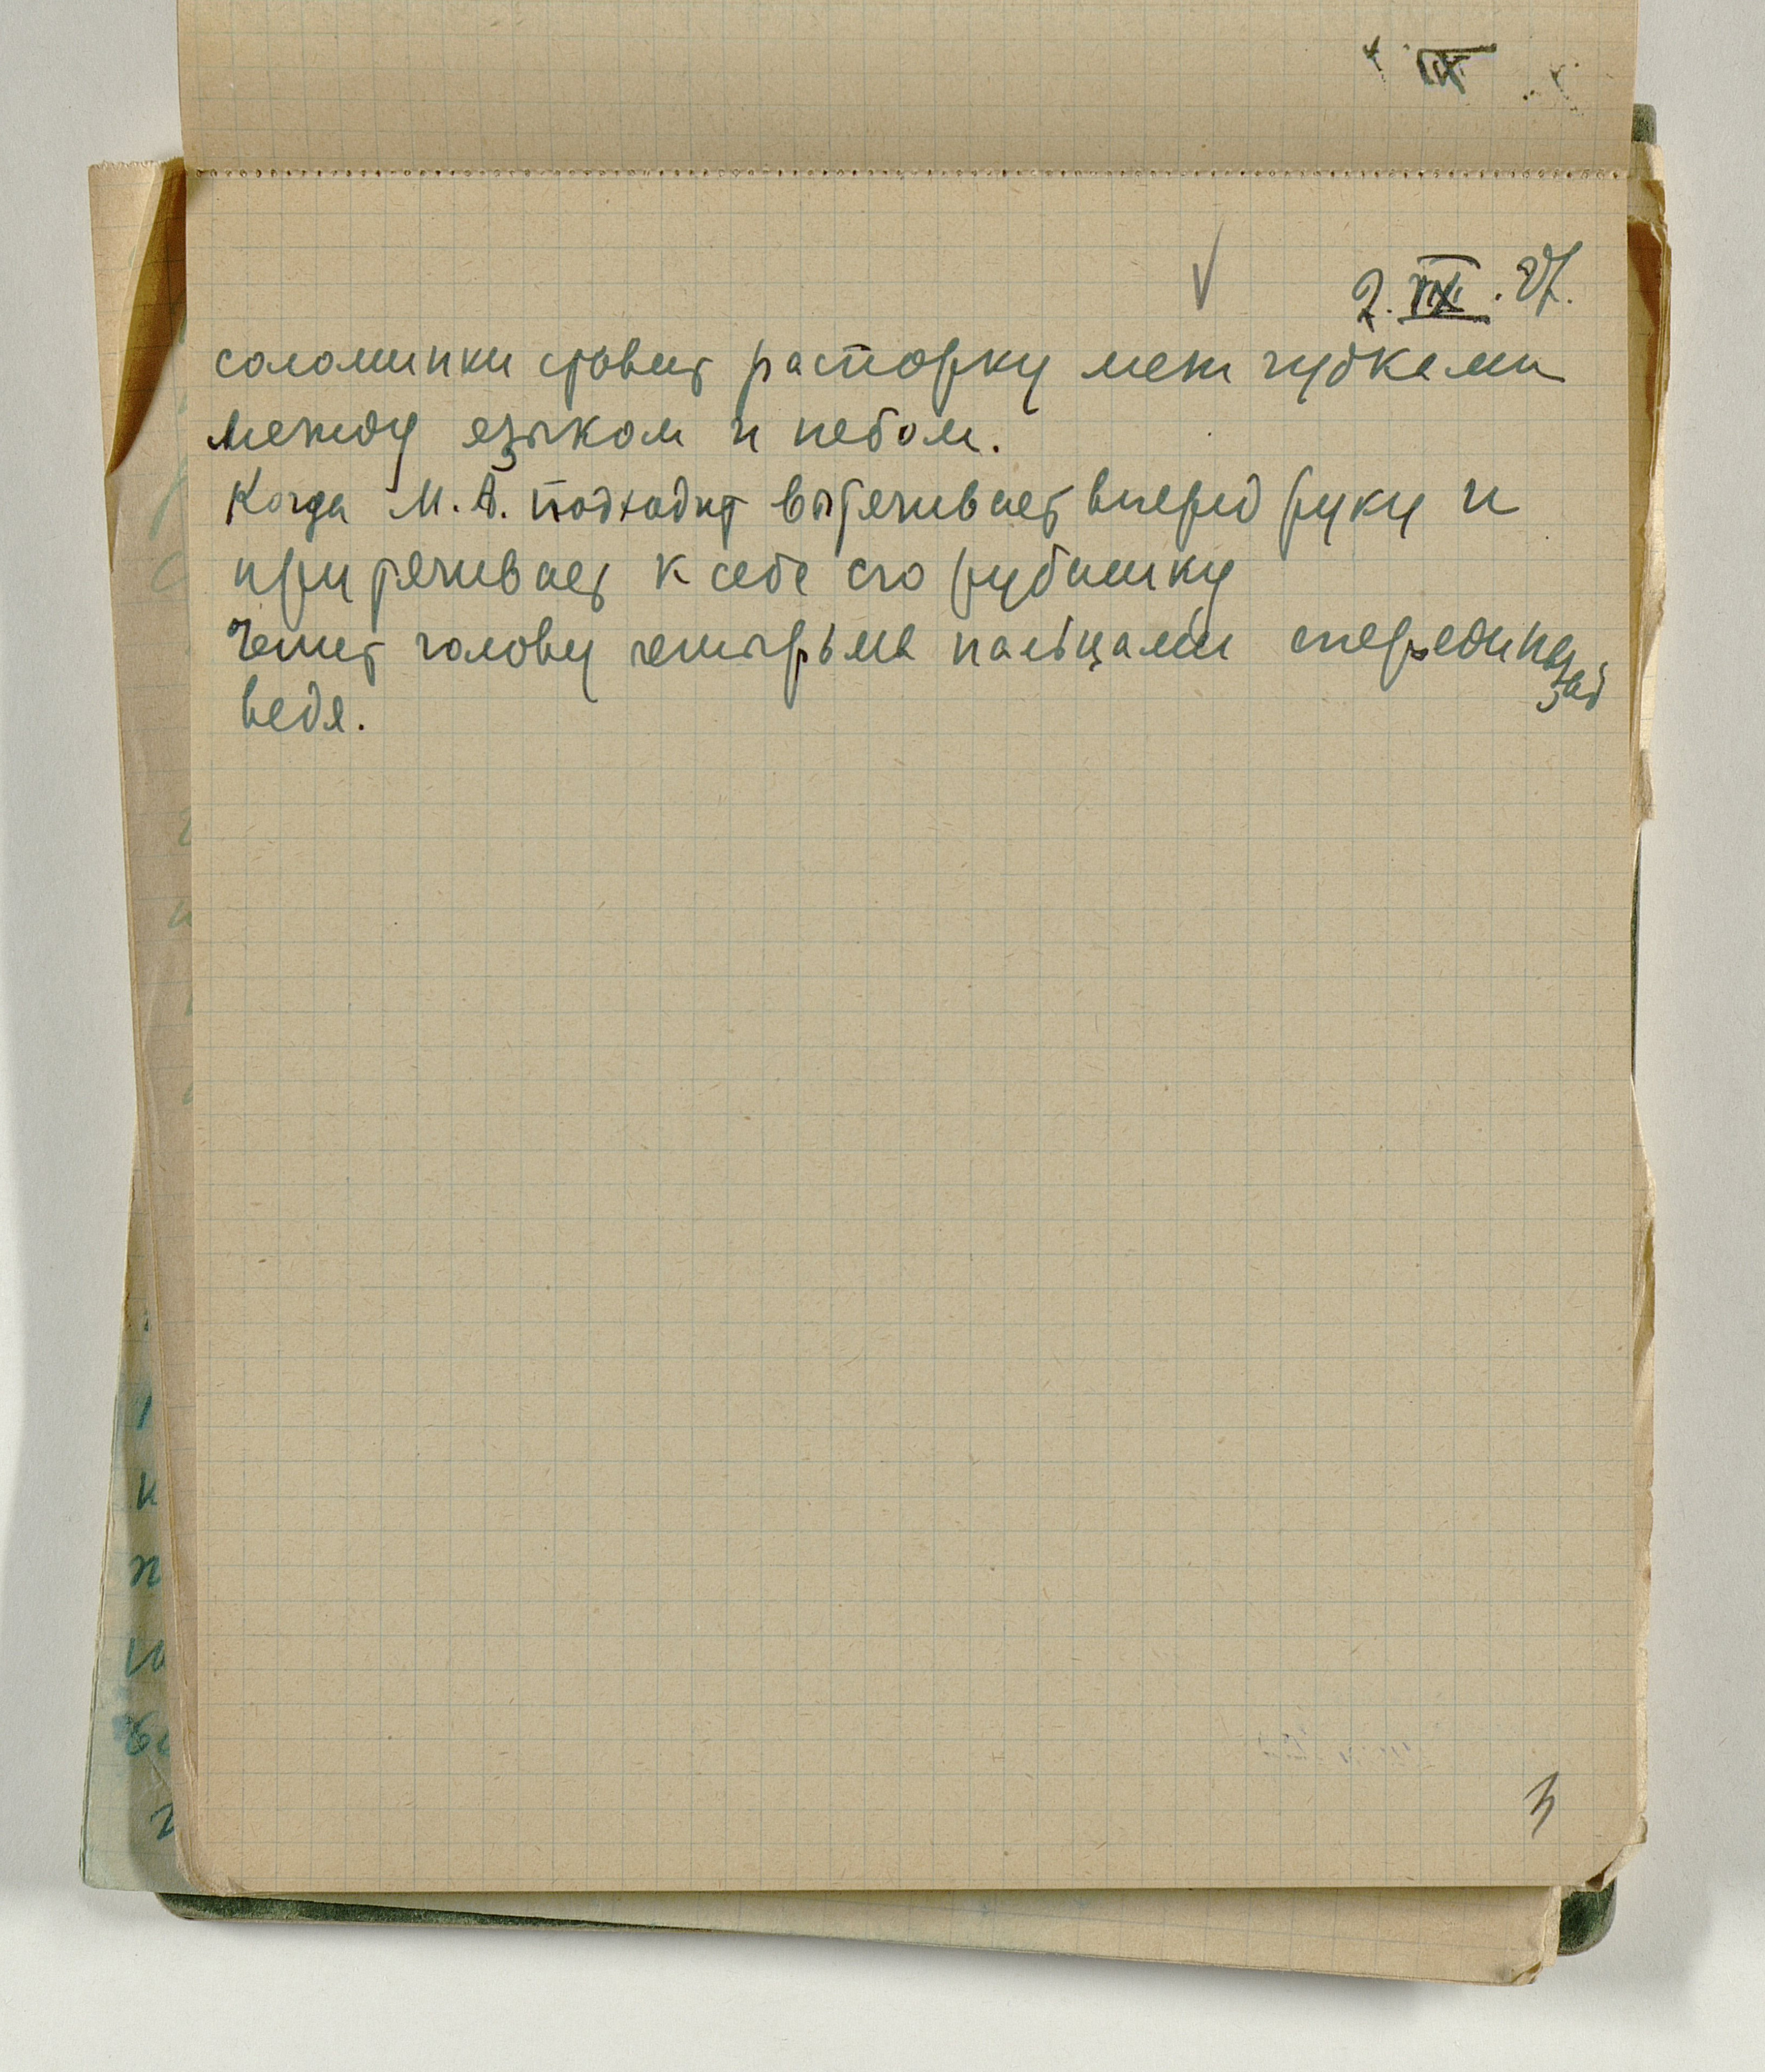 2. IX. 27.
соломинки ставит распорку меж губками
между языком и небом.
Когда М. А. подходит вытягивает вперед руку и
притягивает к себе его рубашку
Чешет голову четырьмя пальцами спереди назад
ведя.
3